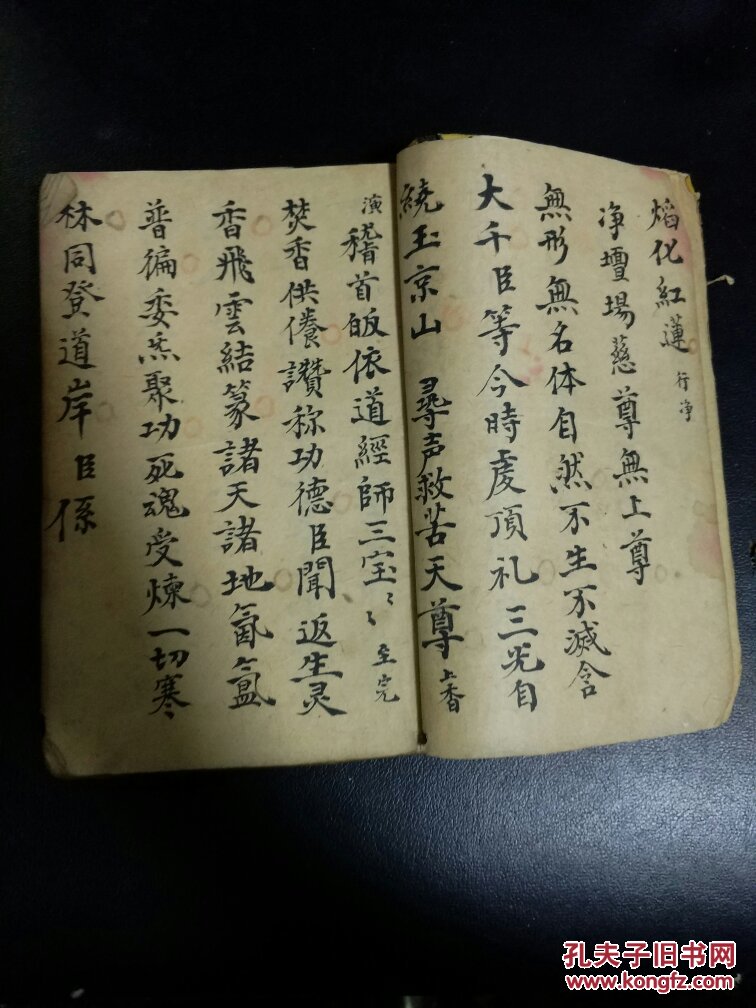 焰化紅蓮 行净
净壇場慈尊無上尊
無形無名体自然不生不滅含
大千臣等今時虔頂礼三光自
繞玉京山 尋声救苦天尊 上香
演 稽首皈依道經師三宝〻〻 至完
焚香供養讚称功德臣聞返生灵
香飛雲結篆諸天諸地氤氳
普徧委炁聚功死魂受煉一切寒
林同登道岸臣係
孔夫子旧书网
www.kongfz.com